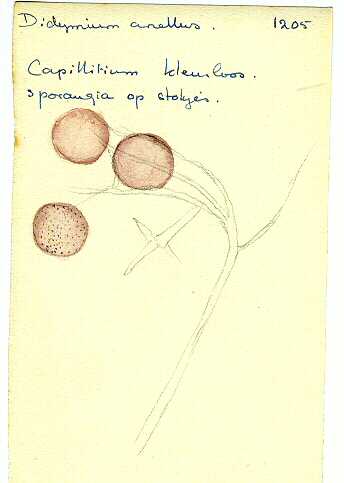 Didymium anellus. 1205
Capillitium kleurloos.
Sporangia op stokjes.